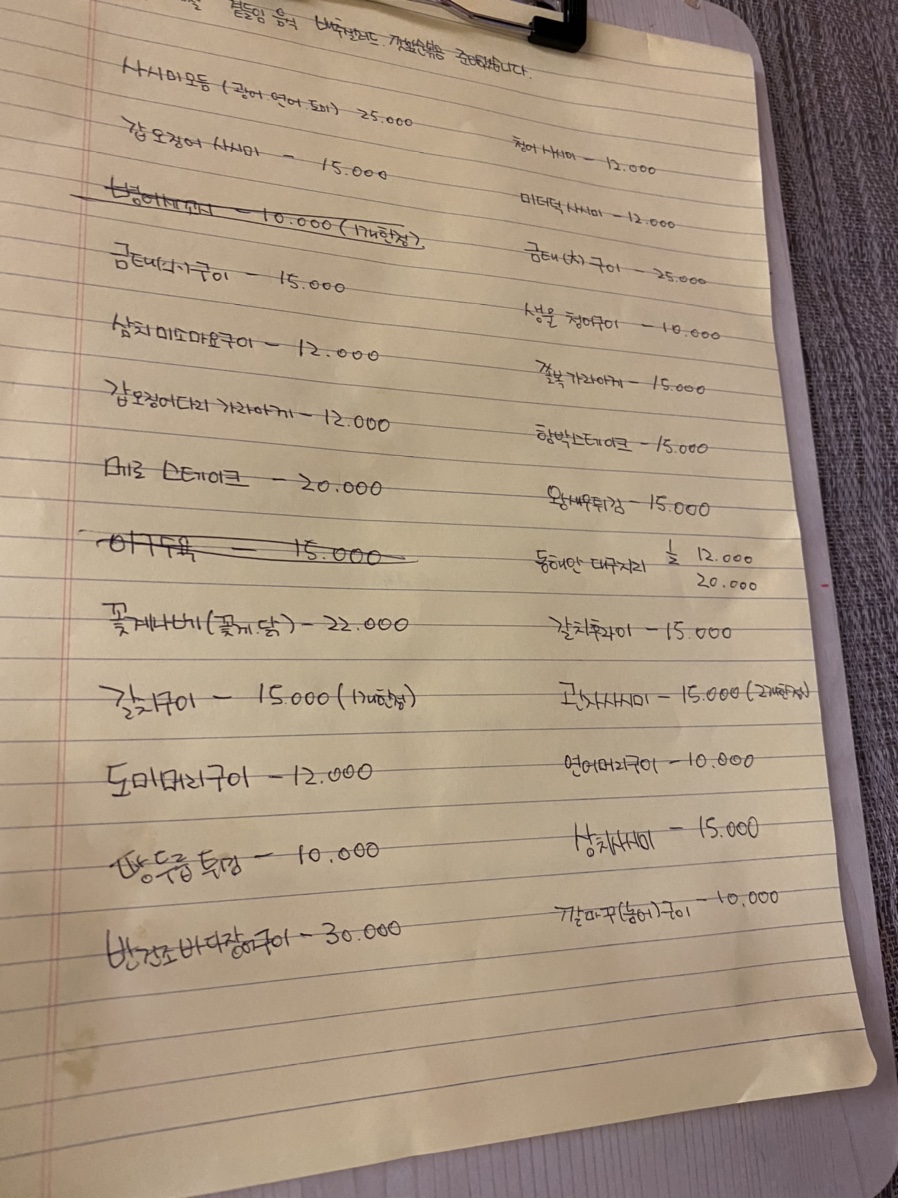 곁들임 음식 배추샐러드. 갯방풍볶음 준비됩니다.
사시미모듬 (광어.연어.도미) 25.000
갑오징어 사시미 - 15.000
병어세꼬시 - 10.000 (1개한정)
금태(소)구이 - 15.000
삼치미소마요구이 - 12.000
갑오징어다리 가라아게 - 12.000
메로 스테이크 - 20.000
- 15.000
꽃게나베 (꽃게.닭) - 22.000
갈치구이 - 15.000 (1개한정)
도미머리구이 - 12.000
땅두릅 튀김 - 10.000
반건조바다장어구이 - 30.000
청어 사시미 - 12.000
미더덕 사시미 - 12.000
금태(大) 구이 - 25.000
생물 청어구이 - 10.000
쫄복가라아게 - 15.000
함박스테이크 - 15.000
왕새우튀김 - 15.000
동해안 대구지리 ½ 12.000
20.000
갈치후라이 - 15.000
관자사시미 - 15.000 (2개한정)
연어머리구이 - 10.000
삼치사시미 - 15.000
깔따구(농어)구이 - 10.000